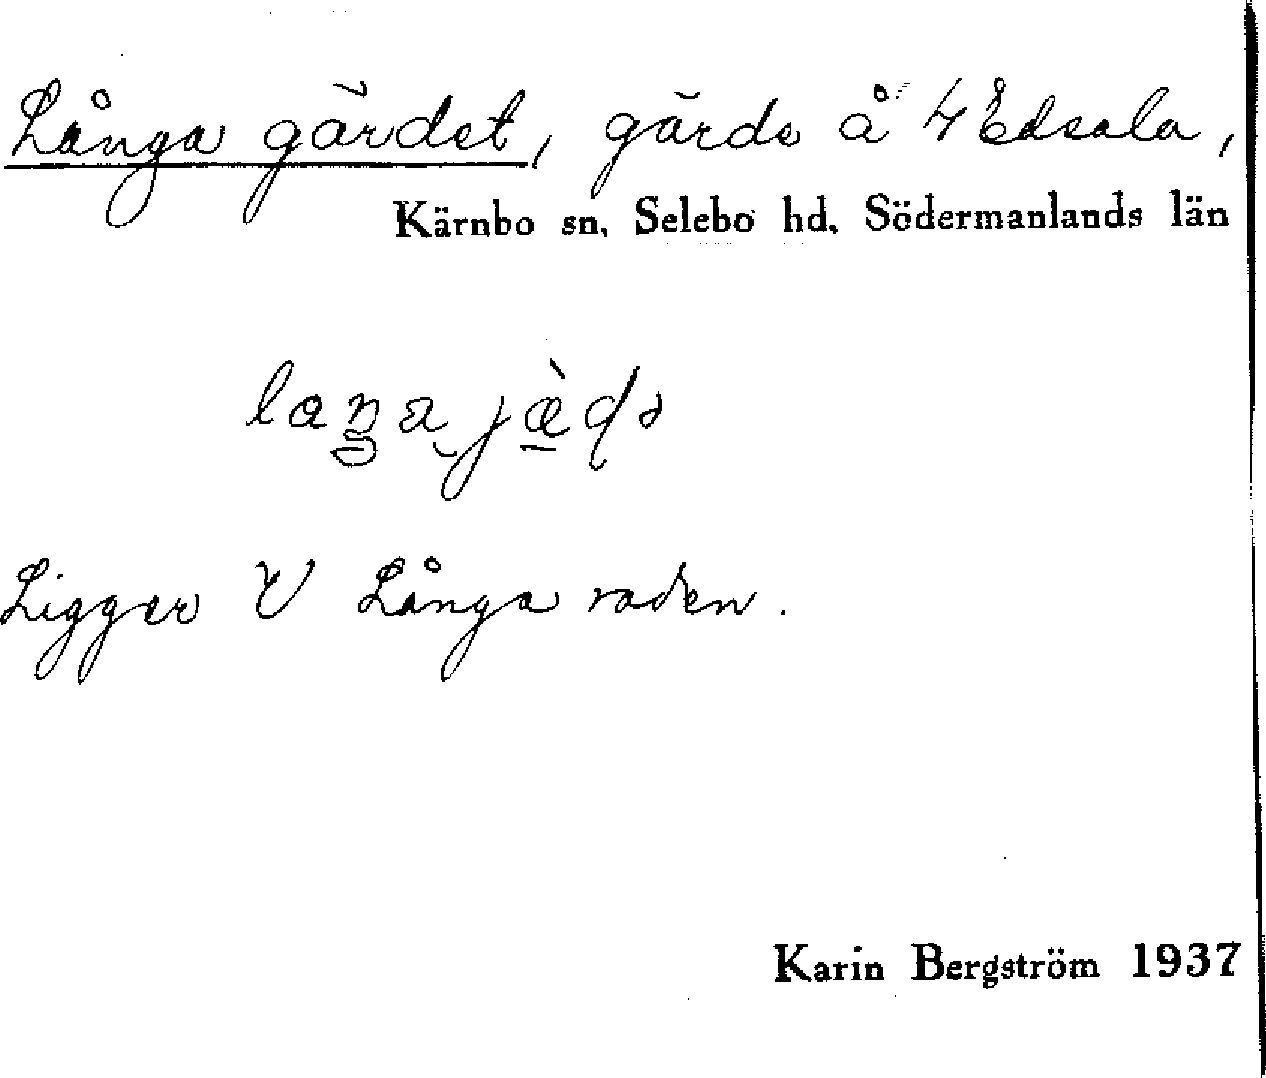 Långa gärdet, gärde å 4 Edsala,
Kärnbo sn, Selebo hd, Södermanlands län
Ligger V Långa raden.
Karin Bergström 1937